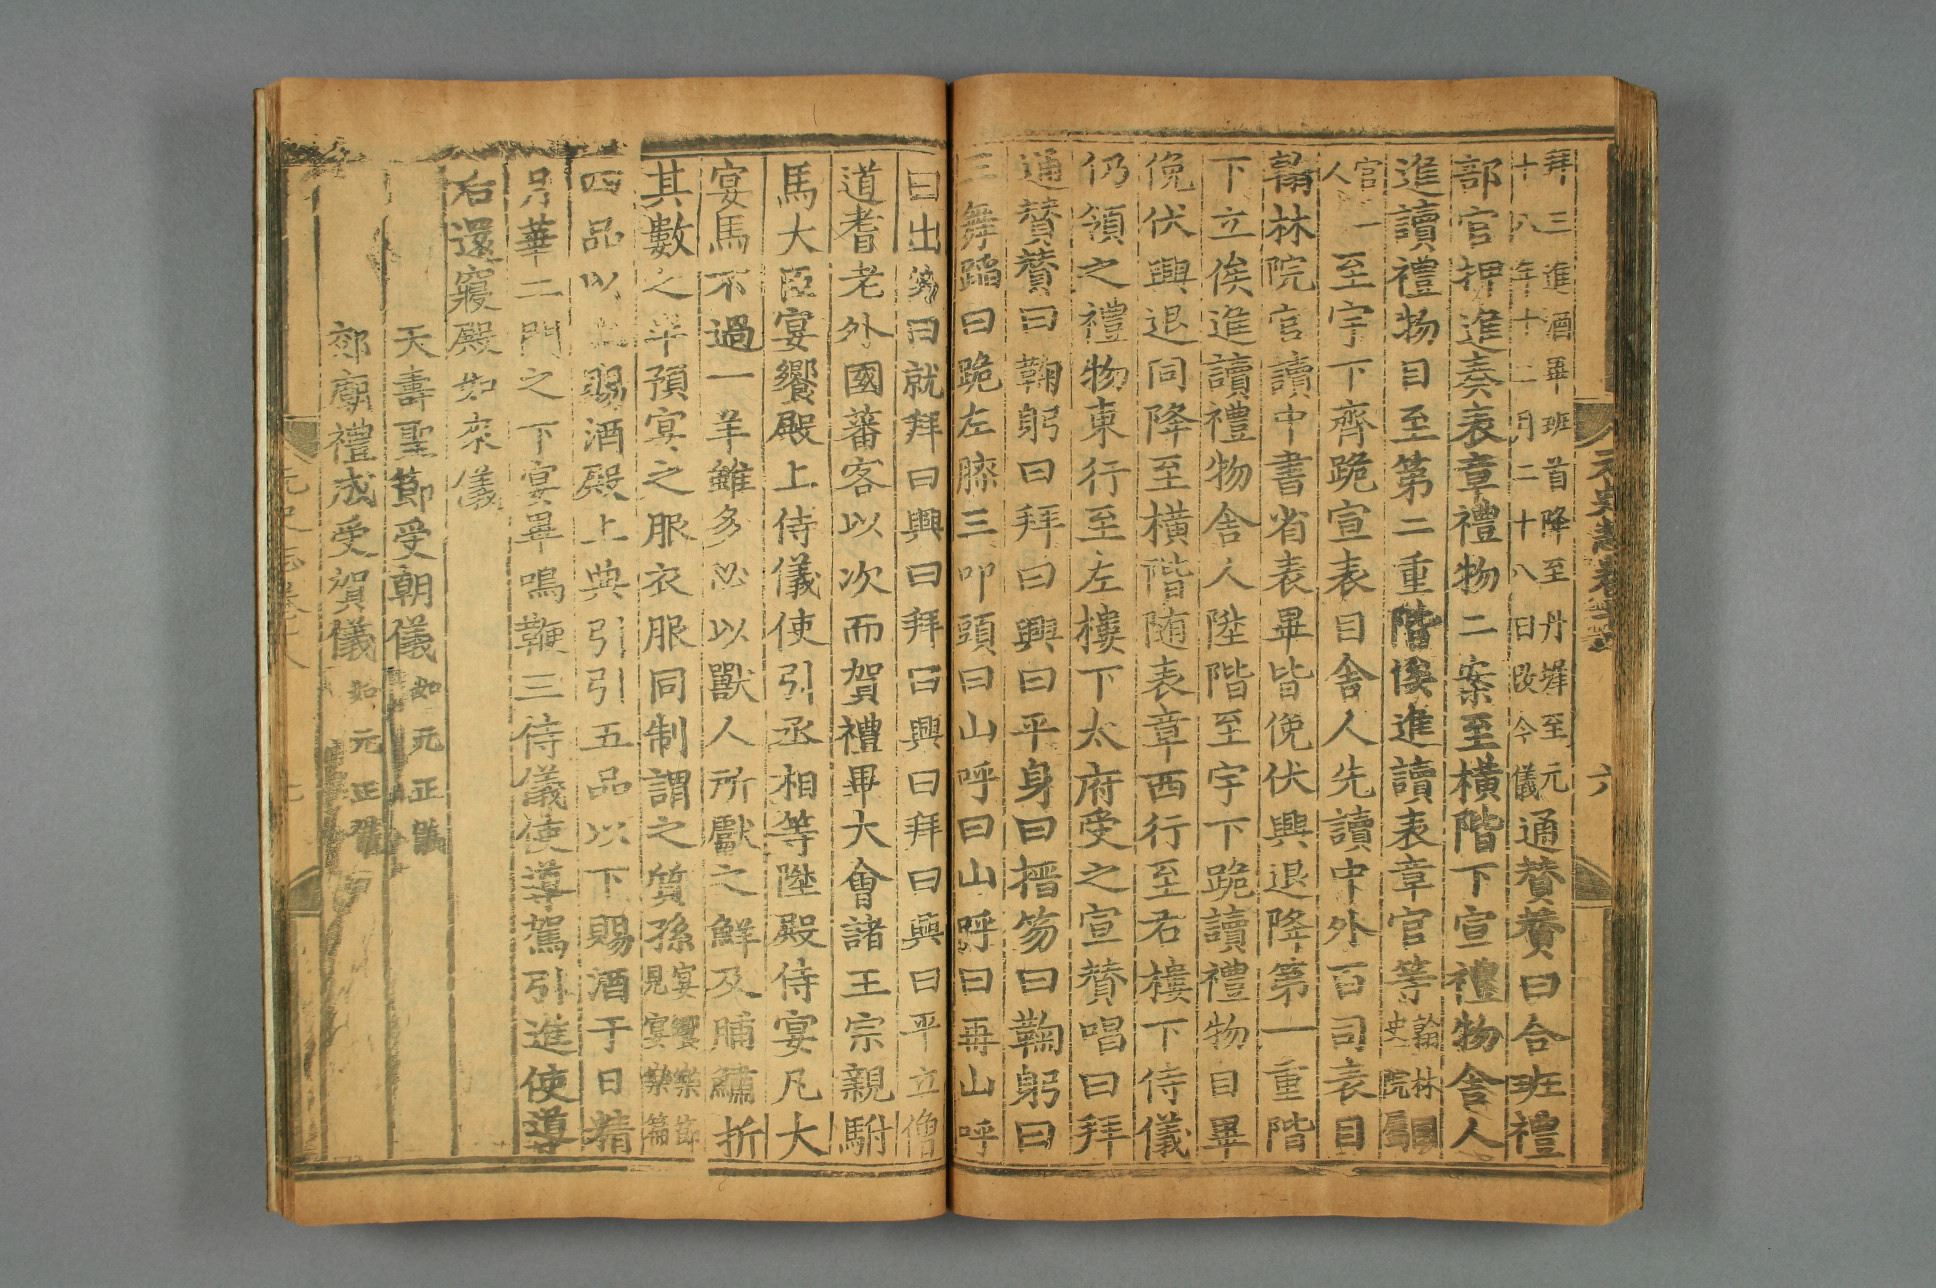 拜三進酒畢班首降至丹墀至元
十八年十二月二十八日改今儀
通贊贊曰合班禮
部官押進奏表章禮物二案至橫階下宣禮物舍人
進讀禮物目至第二重階俟進讀表章官等
翰林國
史院屬
官一
人
至宇下齊跪宣表目舍人先讀中外百司表目
翰林院官讀中書省表畢皆俛伏興退降第一重階
下立俟進讀禮物舍人陞階至宇下跪讀禮物目畢
俛伏興退同降至橫階随表章西行至右樓下侍儀
仍領之禮物東行至左樓下太府受之宣贊唱曰拜
通贊贊曰鞠躬曰拜曰興曰平身曰搢笏曰鞠躬曰
三舞蹈曰跪左膝三叩頭曰山呼曰山呼曰再山呼
曰出笏曰就拜曰興曰拜曰興曰拜曰興曰平立僧
道耆老外國蕃客以次而賀禮畢大會諸王宗親駙
馬大臣宴饗殿上侍儀使引丞相等陞殿侍宴凡大
宴馬不過一羊雖多必以獸人所獻之鮮及脯鱐折
其數之半預宴之服衣服同制謂之質孫
宴饗樂節
見宴樂篇
四品以上賜酒殿上典引引五品以下賜酒于日精
月華二門之下宴畢鳴鞭三侍儀使導駕引進使導
后還寢殿如來儀
天壽聖節受朝儀
如元正儀
郊廟禮成受賀儀
如元正儀
元史志卷十八
六
七